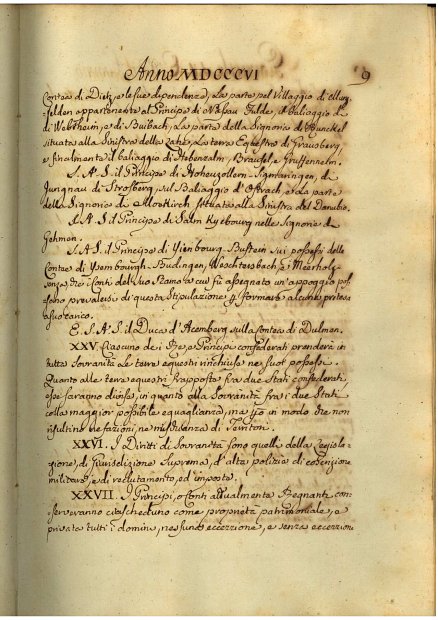 Anno MDCCCVI
9
Contea di Dietz, e le sue dipendenze, La parte pel Villaggio di
felden appartenente al Principe di Nassau Fulde, il baliaggio di
di Wehrheim, e di Buibach, La parte della Signoria di Runckel
situata alla Sinistra della Lahn, La terra Equestre di Cransberg,
e finalmente il baliaggio di Hohenzalm, Braufel, e Greiffenhein.
S. A. S. il Principe di Hohenzollern-Sigmaringen, di
Jungnau di Strosberg, sul Baliaggio d'Ostrach, e La parte
della Signoria di Moskirch situata alla Sinistra del Danubio.
S. A. S. il Principe di Salm Kyrbourg nelle Signorie di
Gehmen.
S. A. S. il Principe di Yienbourg Bustein sui possessi delle
Contee di Ysembourgh-Budingen, Wechtersbach, e Meerholz,
senza, che i Conti del suo Ramo a cui fù assegnato un'appoggio pos-
sano prevalersi di questa Stipulazione p formare alcuna pretesa
a suo carico.
E. S. A. S. il Duca d'Aremberg sulla Contea di Dulmen.
XXV. Ciascuno de i Re, e Principi confederati prenderà in
tutta Sovranità Le terre equestri rinchiuse ne suoi possessi.
Quanto alle terre equestri frapposte fra due Stati confederati,
esse saranno divise, in quanto alla Sovranità fra i due Stati
colla maggior possibile eguaglianza, ma già in modo che non
risultino ne fazioni, ne mistidanza di Territori.
XXVI. I Diritti di Sovranità sono quelli della Legisla-
zione, di Giurisdizione Suprema, d'alta polizia di coscrizione
militare, e di reclutamento, ed imposte.
XXVII. I Principi, o Conti attualmente Regnanti con-
serveranno ciascheduno come proprietà patrimoniale, e
privata tutti i domini, nessuno eccezione, e senza eccezione